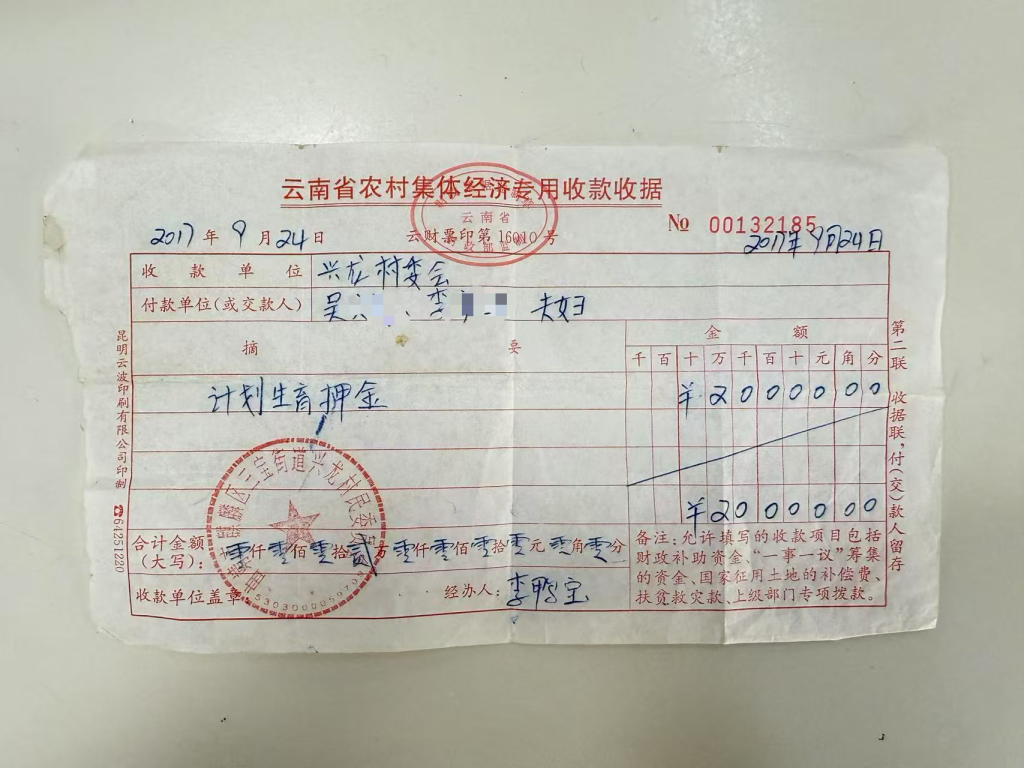 云南省农村集体经济专用收款收据
云南省
№ 00132185
2017年9月24日
云财票印第16010号
2017年9月24日
收款单位 兴龙村委会
付款单位(或交款人) 吴 、李 夫妇
摘要 金额
千百十万千百十元角分
计划生育押金 ¥2000000
¥2000000
合计金额(大写): 零仟零佰零拾贰万零仟零佰零拾零元零角零分
收款单位盖章 经办人:李鸭宝
备注:允许填写的收款项目包括
财政补助资金、“一事一议”筹集
的资金、国家征用土地的补偿费、
扶贫救灾款、上级部门专项拨款。
麒麟区三宝街道兴龙村民委员
昆明云波印刷有限公司印制 ☎64251220
第二联 收据联,付(交)款人留存